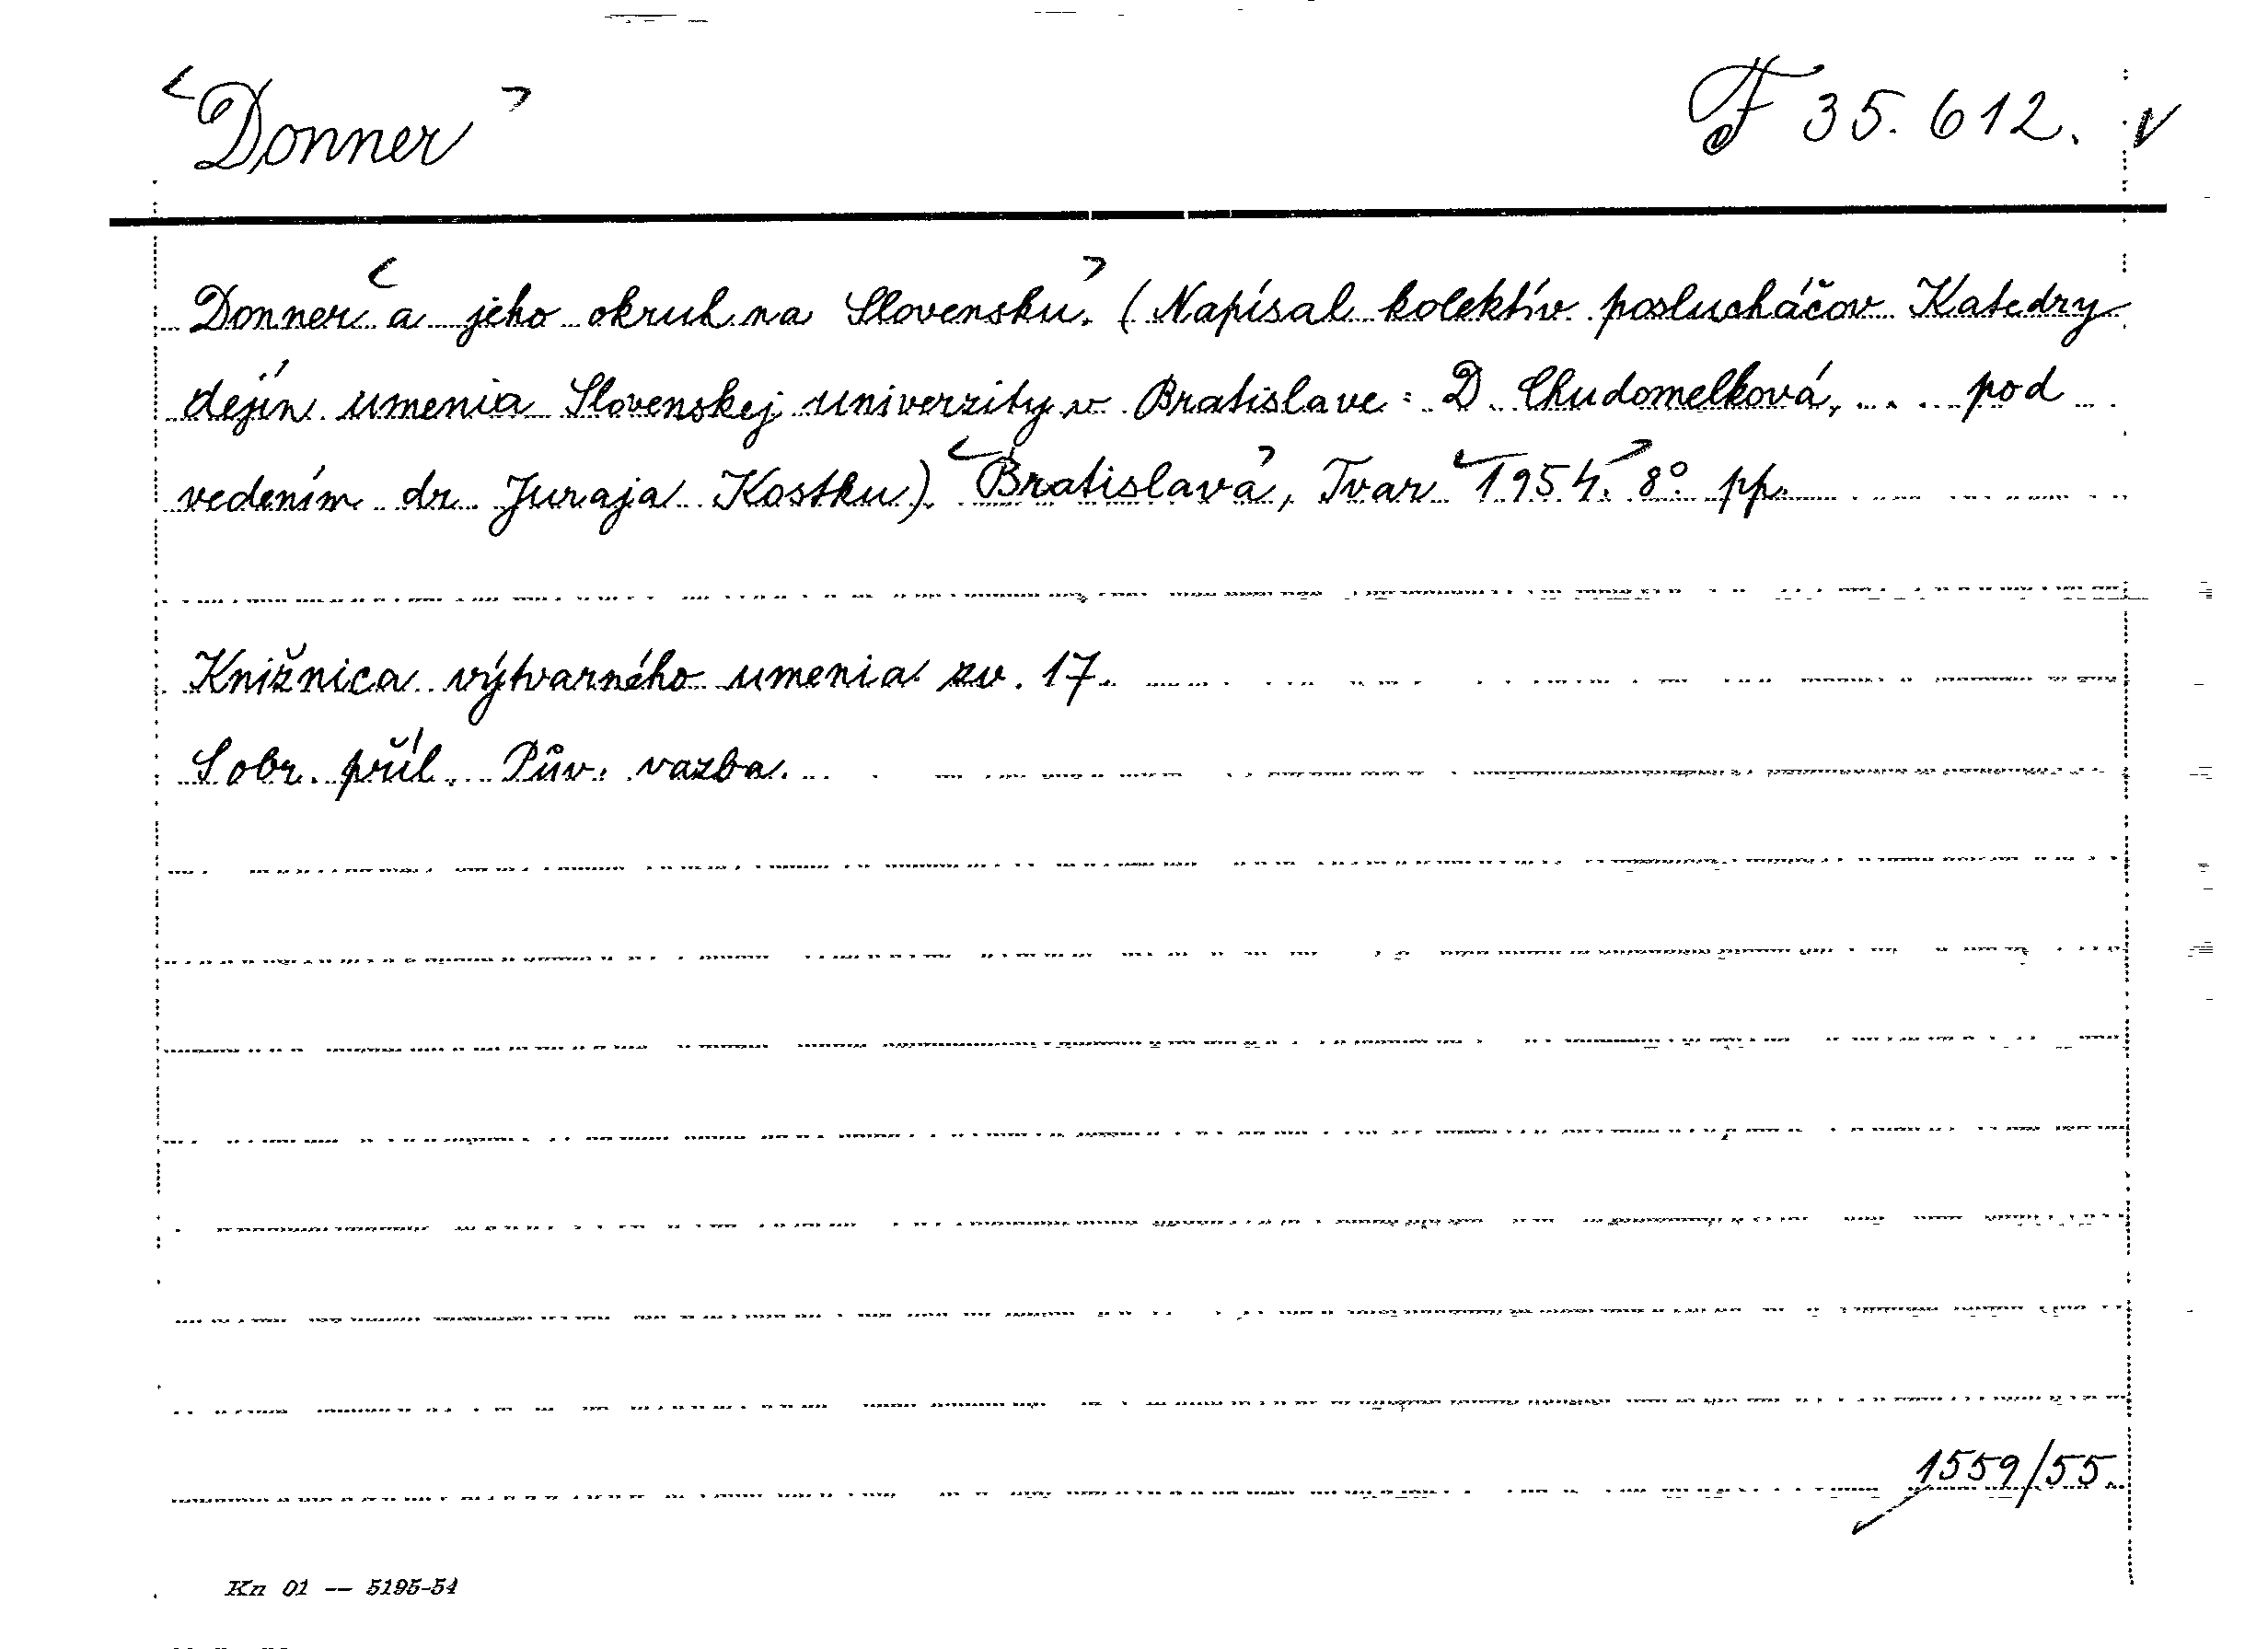 Donner F 35.612. v
Donner a jeho okruh na Slovensku. (Napísal kolektív poslucháčov Katedry
dejín umenia Slovenskej univerzity v Bratislave: D. Chudomelková, ... pod
vedením dr. Juraja Kostku). Bratislava, Tvar 1954. 8° pp.
Knižnica výtvarného umenia zv. 17.
S obr. příl. Pův. vazba.
1559/55.
Kn 01 -- 5195-54